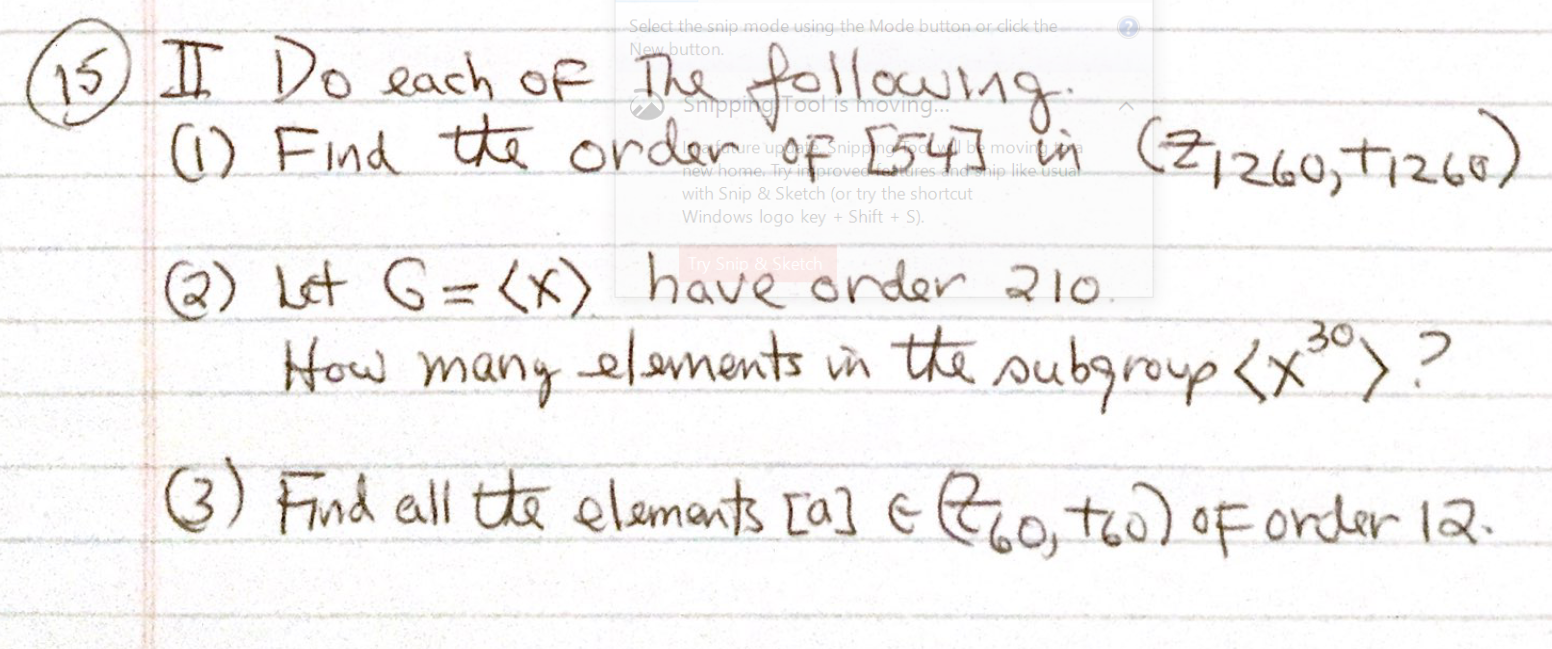 Select the snip mode using the Mode button or click the
New button.
(15) II Do each of The following.
Snipping Tool is moving...
(1) Find the order of [54] in (Z₁₂₆₀, +₁₂₆₀)
In a future update, Snipping Tool will be moving to a
new home. Try improved features and snip like usual
with Snip & Sketch (or try the shortcut
Windows logo key + Shift + S).
Try Snip & Sketch
(2) Let G = ⟨x⟩ have order 210.
How many elements in the subgroup ⟨x³⁰⟩?
(3) Find all the elements [a] ∈ (Z₆₀, +₆₀) of order 12.